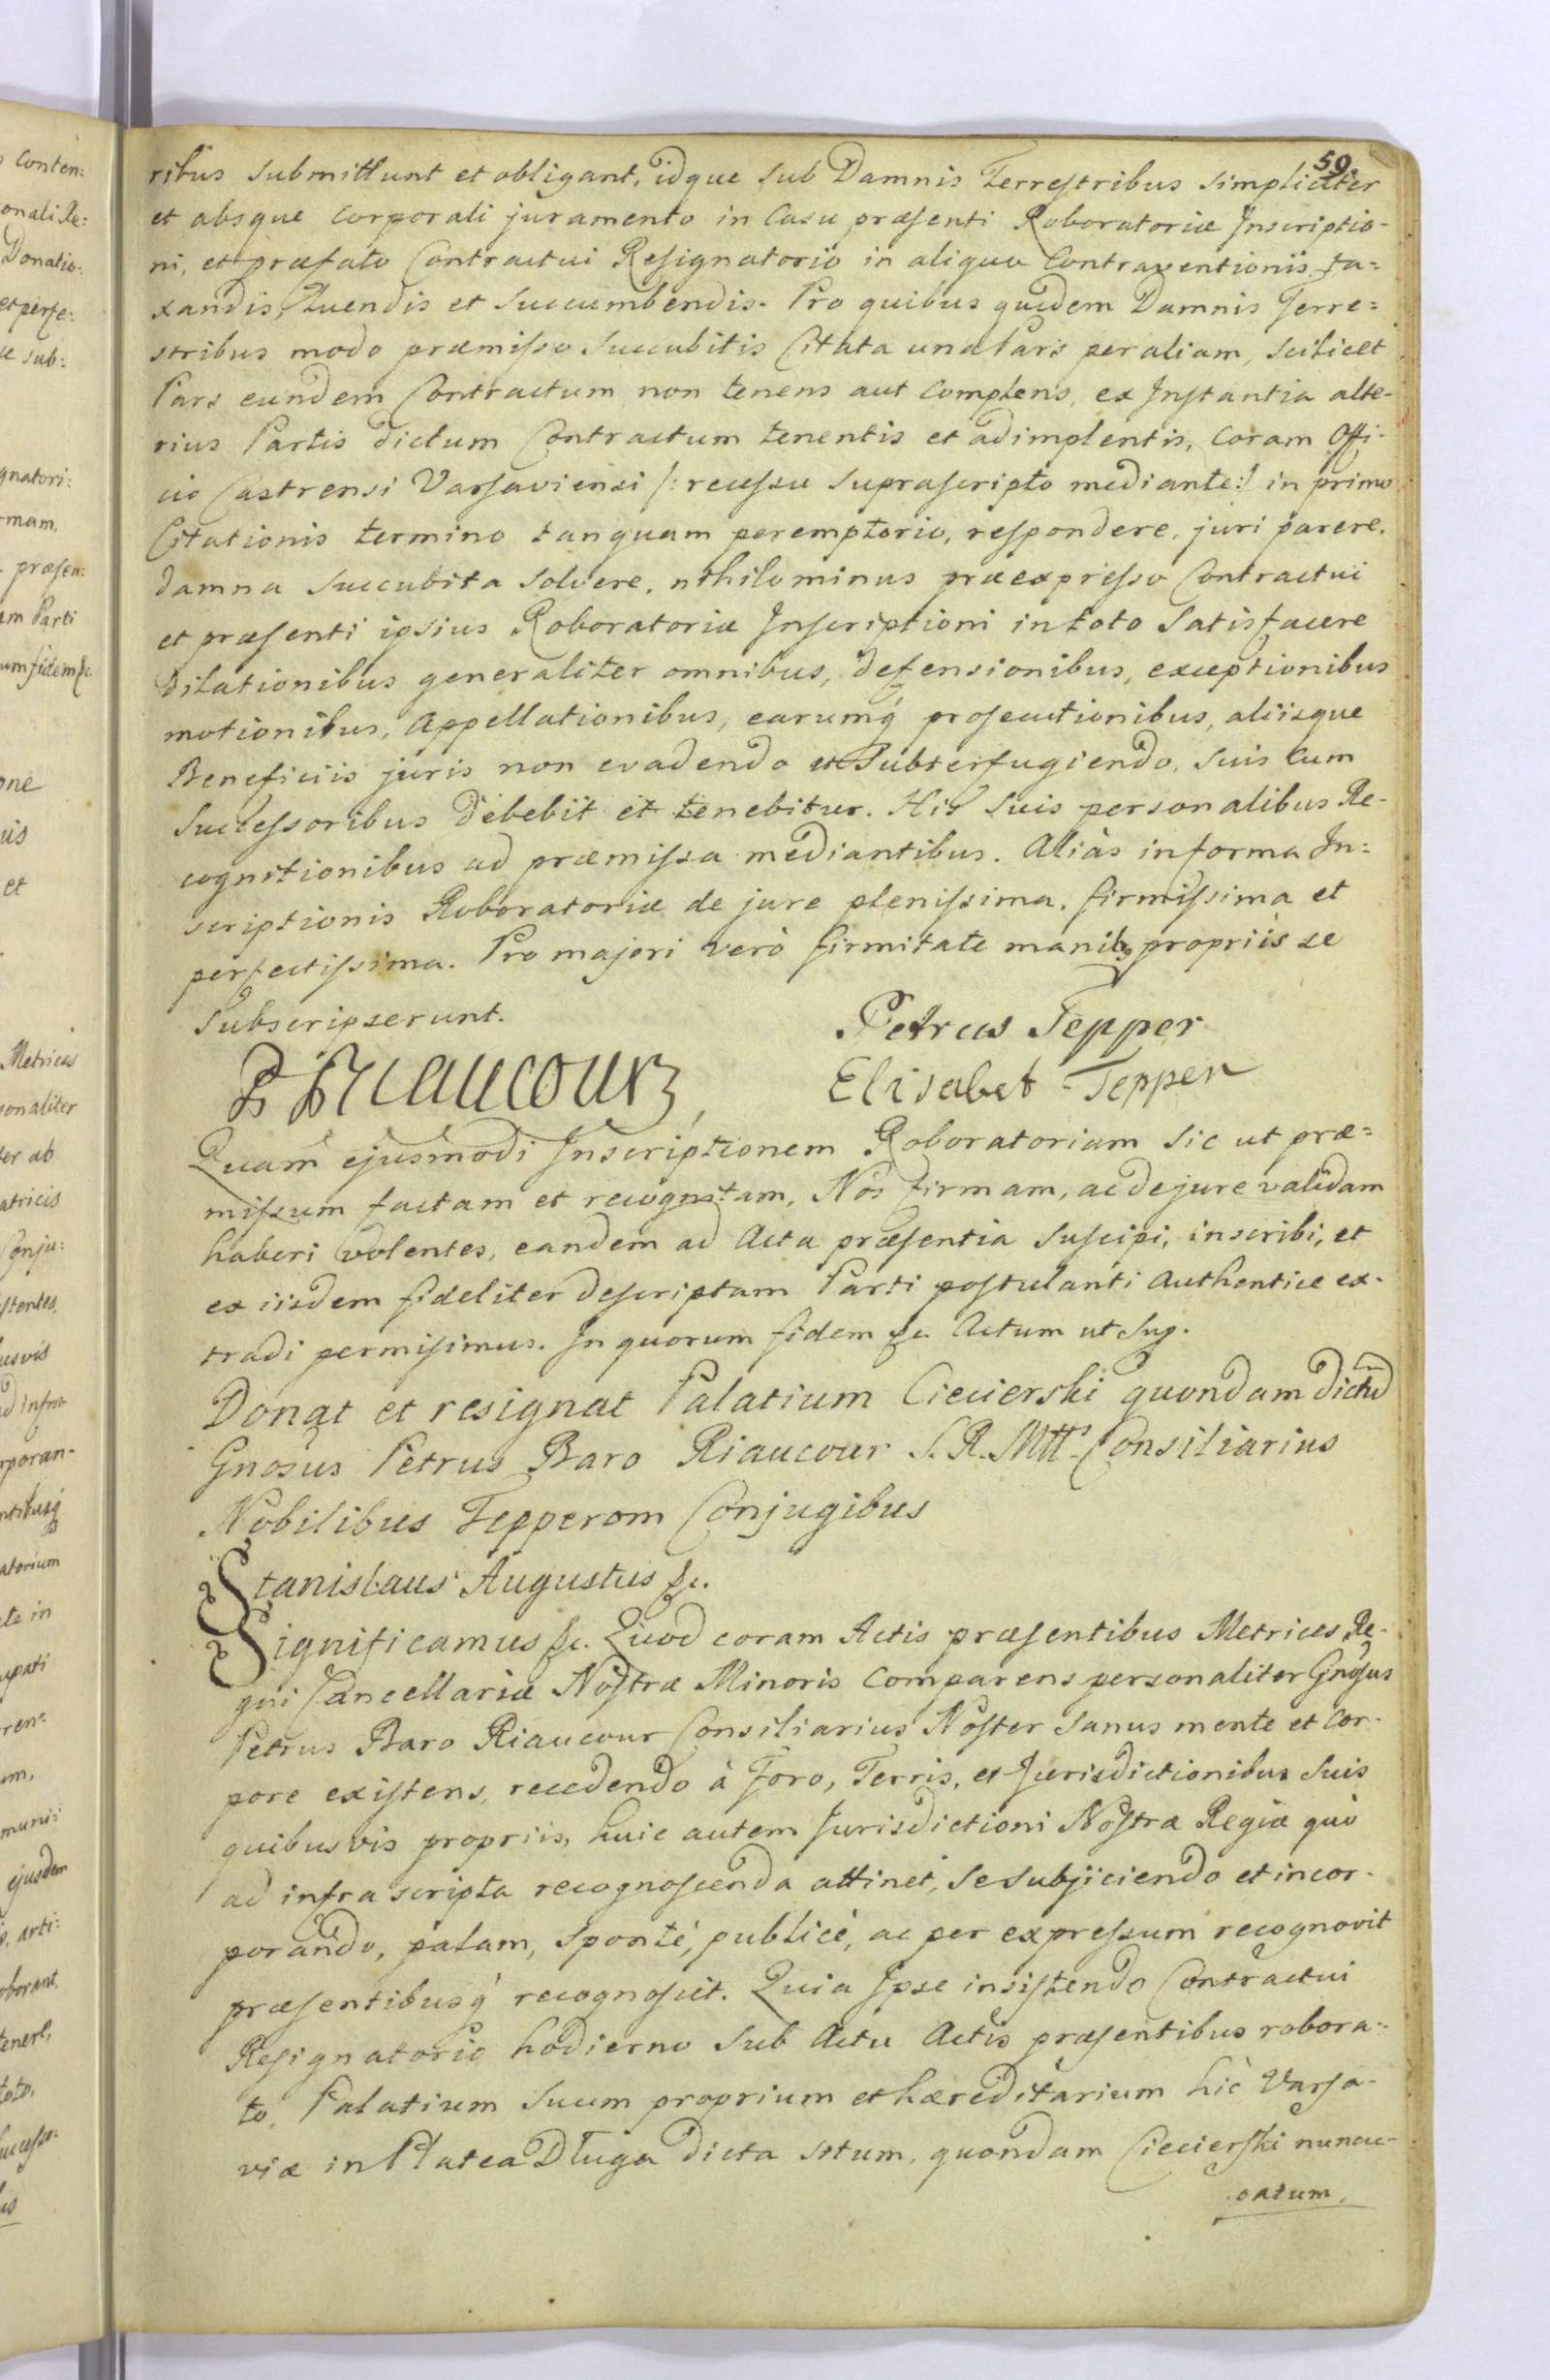 59
ribus submittunt et obligant, idque sub Damnis Terrestribus simpliciter
et absque corporali juramento in Casu præsenti Roboratoriæ Inscriptio-
ni, et præfato Contractui Resignatorio in aliquo Contraventioniis ta=
xandis, luendis et succumbendis. Pro quibus quidem Damnis Terre=
stribus modo præmisso succubitis Citata una Pars per aliam, scilicet
Pars eundem Contractum non tenens aut complens, ex Instantia alte-
rius Partis dictum Contractum tenentis et adimplentis, coram Offi-
cio Castrensi Varsaviensi /: recessu suprascripto mediante :/ in primo
Citationis termino tanquam peremptorio, respondere, juri parere,
damna succubita solvere, nihilominus præexpresso Contractui
et præsenti ipsius Roboratoriæ Inscriptioni in toto satisfacere
Dilationibus generaliter omnibus, defensionibus, exceptionibus
motionibus, Appellationibus, earumq́ prosecutionibus, aliisque
Beneficiis juris non evadendo et subterfugiendo, suis cum
Successoribus debebit et tenebitur. His suis personalibus Re-
cognitionibus ad præmissa mediantibus. Aliàs in forma In=
scriptionis Roboratoriæ de jure plenissima, firmissima et
perfectissima. Pro majori verò firmitate manibꝫ propriis se
subscripserunt.
Petrus Tepper
P Riaucour,
Elisabet Tepper
Quam ejusmodi Inscriptionem Roboratoriam sic ut præ=
missum factam et recognitam, Nos firmam, ac de jure validam
haberi volentes, eandem ad Acta præsentia suscipi, inscribi, et
ex iisdem fideliter descriptam Parti postulanti authentice ex-
tradi permisimus. In quorum fidem &c. Actum ut sup.
Donat et resignat Palatium Ciecierski quondam dictũ
Gnosus Petrus Baro Riaucour S. R. Mtt. Consiliarius
Nobilibus Tepperom Conjugibus
Stanislaus Augustus &c.
Significamus &c. Quod coram Actis præsentibus Metrices Re-
gni Cancellariæ Nostræ Minoris comparens personaliter Gnosus
Petrus Baro Riaucour Consiliarius Noster sanus mente et cor-
pore existens, recedendo à Foro, Terris, et Jurisdictionibus suis
quibusvis propriis, huic autem Jurisdictioni Nostræ Regiæ quò
ad infra scripta recognoscenda attinet, se subjiciendo et incor-
porando, palam, spontè, publicè, ac per expressum recognovit
præsentibusq́ recognoscit. Quia Ipse insistendo Contractui
Resignatorio hodierno sub Actu Actis præsentibus robora-
to, Palatium suum proprium et hæreditarium hìc Varsa-
viæ in Platea Długa dicta situm, quondam Ciecierski nuncu-
patum,